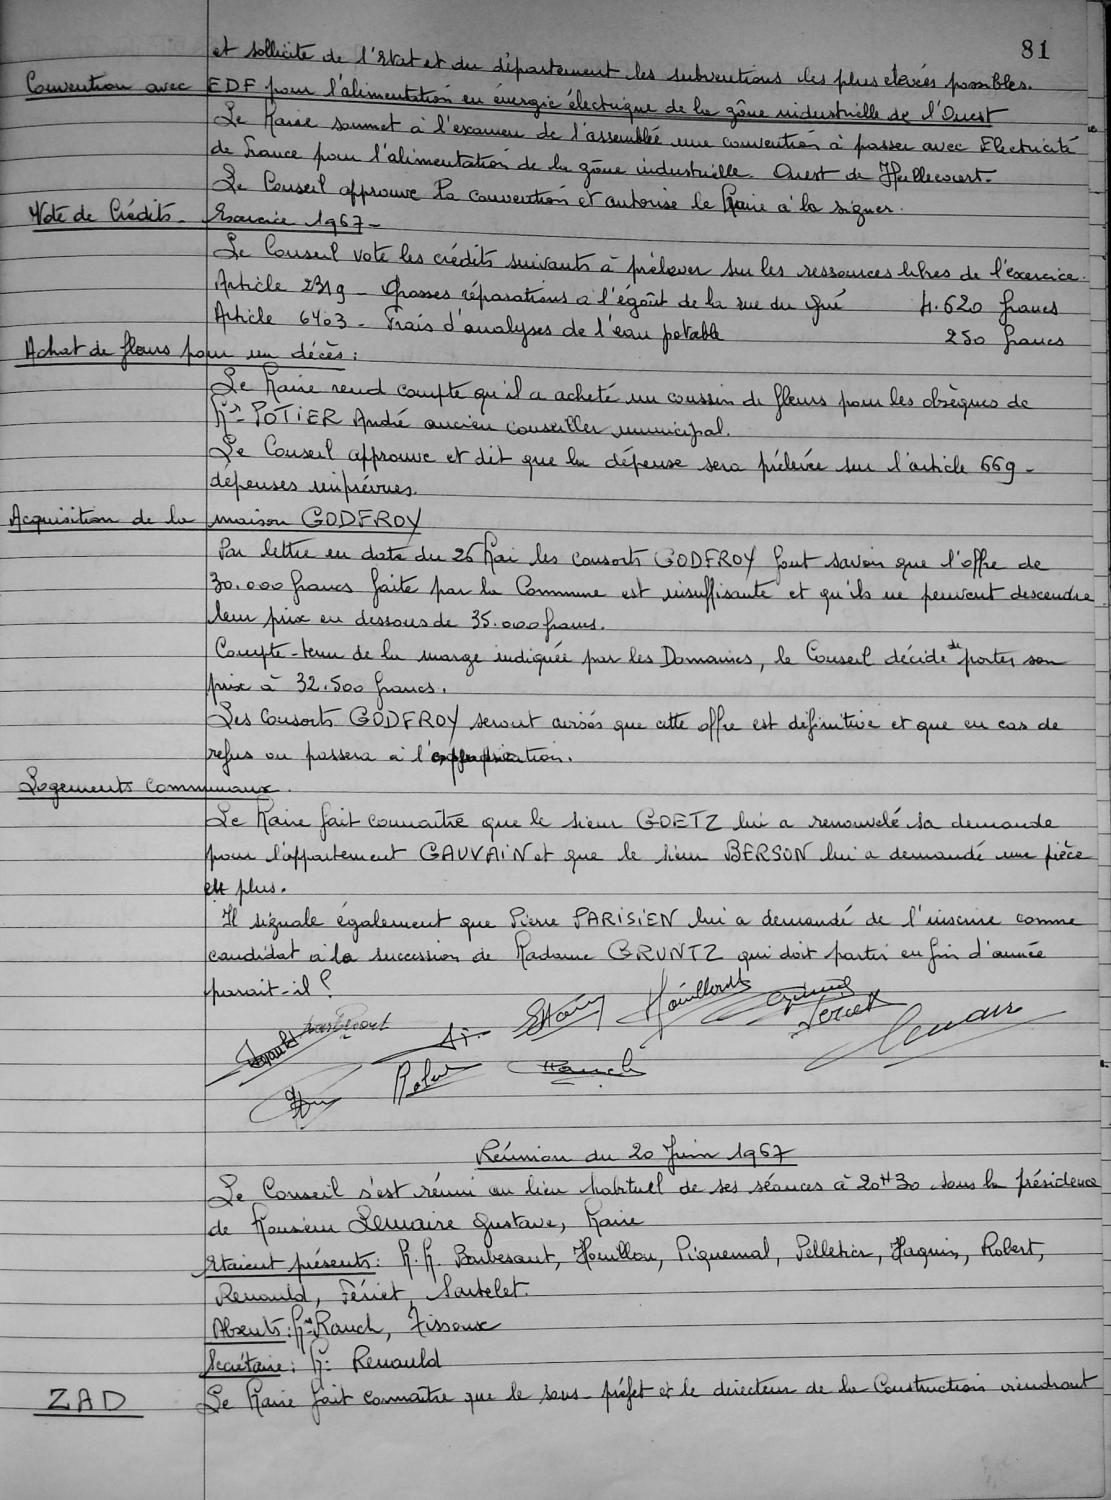 81
et sollicite de l'Etat et du département les subventions les plus élevées possibles.
Convention avec EDF pour l'alimentation en énergie électrique de la zône industrielle de l'Ouest
Le Maire soumet à l'examen de l'assemblé une convention à passer avec Electricité
de France pour l'alimentation de la zône industrielle Ouest de Heillecourt.
Le Conseil approuve la convention et autorise le Maire à la signer.
Vote de Crédits - Exercice 1967 -
Le Conseil vote les crédits suivants à prélever sur les ressources libres de l'exercice.
Article 2319 - Grosses réparations à l'égoût de la rue du Gué 4.620 francs
Article 6403 - Frais d'analyses de l'eau potable 250 francs
Achat de fleurs pour un décès :
Le Maire rend compte qu'il a acheté un coussin de fleurs pour les obsèques de
Mr POTIER André ancien conseiller municipal.
Le Conseil approuve et dit que la dépense sera prélevée sur l'article 669 -
dépenses imprévues.
Acquisition de la maison GODFROY
Par lettre en date du 26 Mai les consorts GODFROY font savoir que l'offre de
30.000 francs faite par la Commune est insuffisante et qu'ils ne peuvent descendre
leur prix en dessous de 35.000 francs.
Compte-tenu de la marge indiquée par les Domaines, le Conseil décide de porter son
prix à 32.500 francs.
Les consorts GODFROY seront avisés que cette offre est définitive et que en cas de
refus on passera à l'expropriation.
Logements communaux.
Le Maire fait connaître que le sieur GOETZ lui a renouvelé sa demande
pour l'appartement GAUVAIN et que le sieur BERSON lui a demandé une pièce
en plus.
Il signale également que Pierre PARISIEN lui a demandé de l'inscrire comme
candidat à la succession de Madame GRUNTZ qui doit partir en fin d'année
parait-il ?
Robert Rauch Lemaire
Réunion du 20 Juin 1967
Le Conseil s'est réuni au lieu habituel de ses séances à 20H30 sous la présidence
de Monsieur Lemaire Gustave, Maire
Etaient présents : M.M. Barbesant, Houillon, Piquemal, Pelletier, Haquin, Robert,
Renauld, Fériet, Sartelet.
Absents : Mrs Rauch, Tisseux
Secrétaire : Mr Renauld
ZAD Le Maire fait connaître que le sous-préfet et le directeur de la Construction viendront